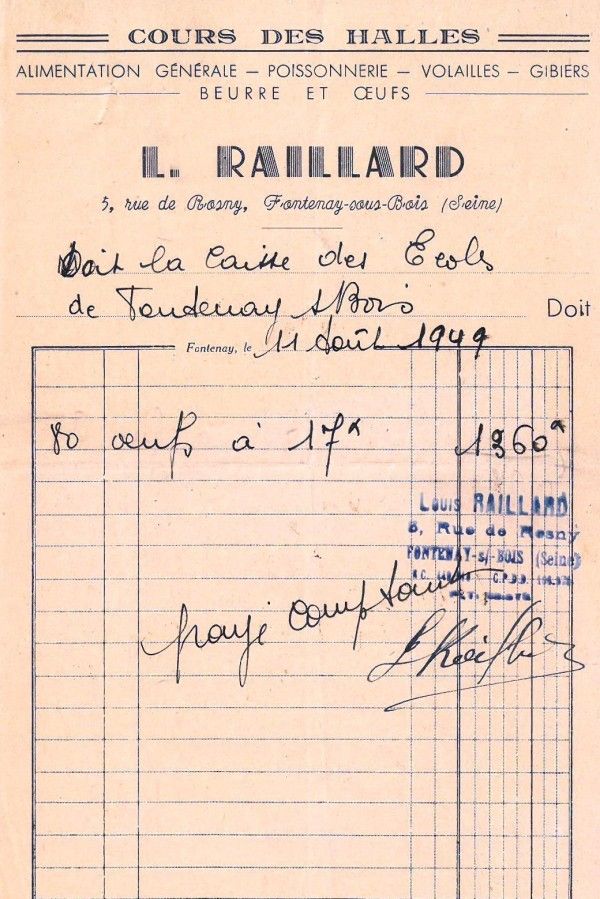 COURS DES HALLES
ALIMENTATION GÉNÉRALE — POISSONNERIE — VOLAILLES — GIBIERS
BEURRE ET ŒUFS
L. RAILLARD
5, rue de Rosny, Fontenay-sous-Bois (Seine)
Doit la Caisse des Ecoles
de Fontenay s Bois Doit
Fontenay, le 11 Août 1949
80 œufs à 17f 1360f
Louis RAILLARD
5, Rue de Rosny
FONTENAY-s/-BOIS (Seine)
R.C. C.P.D.D.
payé comptant